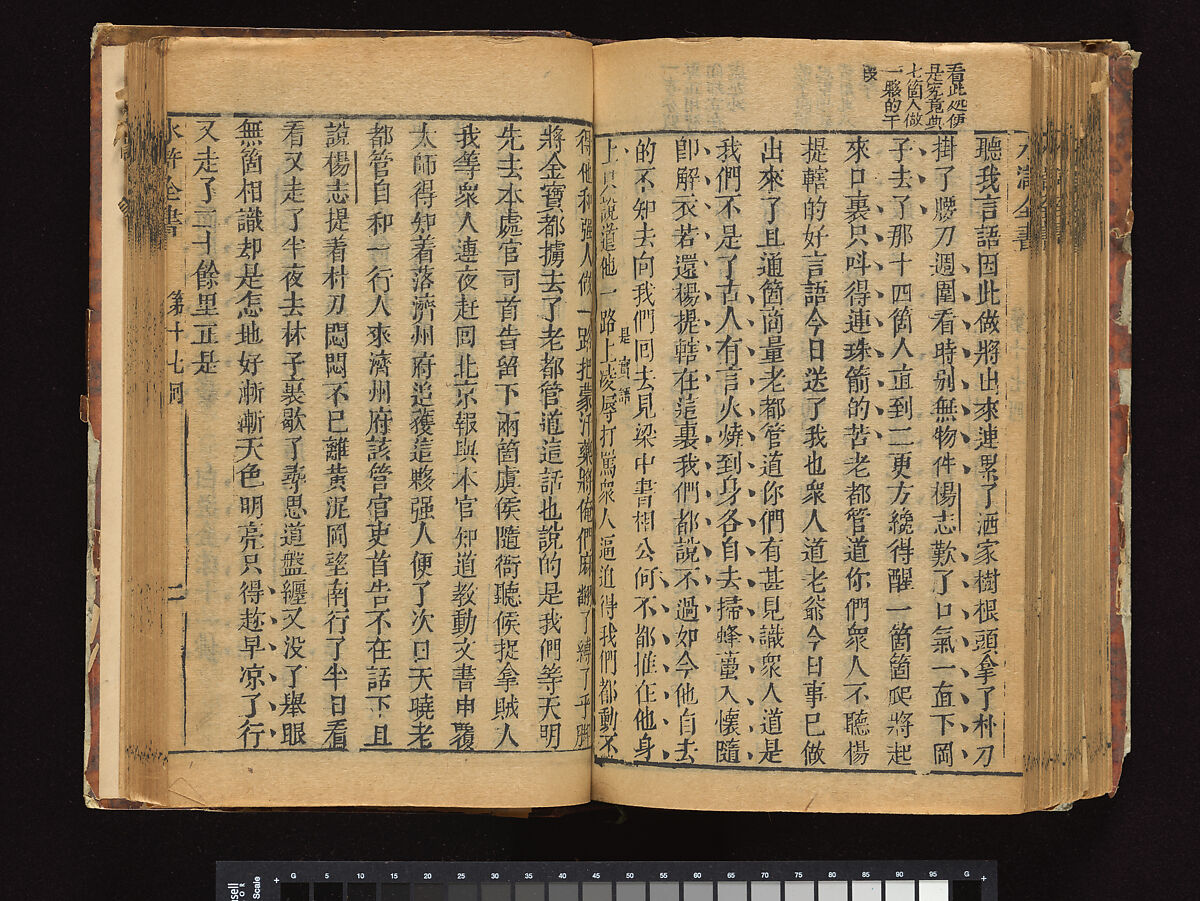 看此処便
是究竟與
七箇人做
一夥的干
段
水滸全書
聽我言語因此做將出來連累了洒家樹根頭拿了朴刀
掛了腰刀週圍看時别無物件楊志歎了口氣一直下岡
子去了那十四箇人直到二更方纔得醒一箇箇爬將起
來口裏只呌得連珠箭的苦老都管道你們衆人不聽楊
提轄的好言語今日送了我也衆人道老爺今日事已做
出來了且通箇商量老都管道你們有甚見識衆人道是
我們不是了古人有言火燒到身各自去掃蜂蠆入懷隨
卽解衣若還楊提轄在這裏我們都說不過如今他自去
的不知去向我們囘去見梁中書相公何不都推在他身
是實語
上只說道他一路上凌辱打罵衆人逼迫得我們都動不
得他和强人做一路把蒙汗藥將俺們麻翻了縛了手脚
將金寶都擄去了老都管道這話也說的是我們等天明
先去本處官司首告留下兩箇虞候隨衙聽候捉拿賊人
我等衆人連夜赶囘北京報與本官知道教動文書申覆
太師得知着落濟州府追獲這夥强人便了次日天曉老
都管自和一行人來濟州府該管官吏首告不在話下且
說楊志提着朴刀悶悶不已離黄泥岡望南行了半日看
看又走了半夜去林子裏歇了尋思道盤纏又没了舉眼
無箇相識却是怎地好漸漸天色明亮只得趂早凉了行
又走了二十餘里正是
水滸全書 第十七囘 二